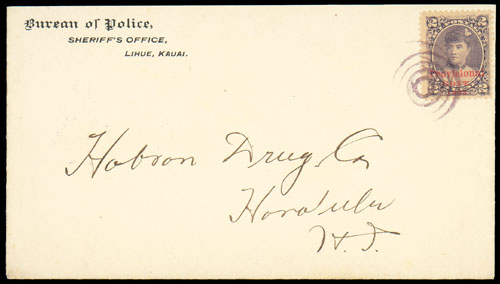 Bureau of Police,
SHERIFF'S OFFICE,
LIHUE, KAUAI.
Provisional
GOVT.
Hobron Drug Co
Honolulu
H.I.